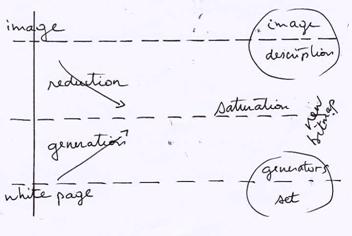 image
image
description
reduction
saturation
new
bitmap
generation
white page
generators
set